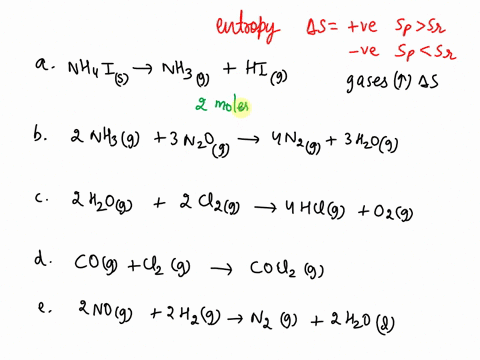 entropy ΔS = +ve Sp>Sr
-ve Sp<Sr
a. NH4I(s) → NH3(g) + HI(g) gases (↑) ΔS
2 moles
b. 2 NH3(g) + 3 N2O(g) → 4N2(g) + 3H2O(g)
c. 2 H2O(g) + 2 Cl2(g) → 4 HCl(g) + O2(g)
d. CO(g) + Cl2(g) → COCl2(g)
e. 2NO(g) + 2H2(g) → N2(g) + 2H2O(l)